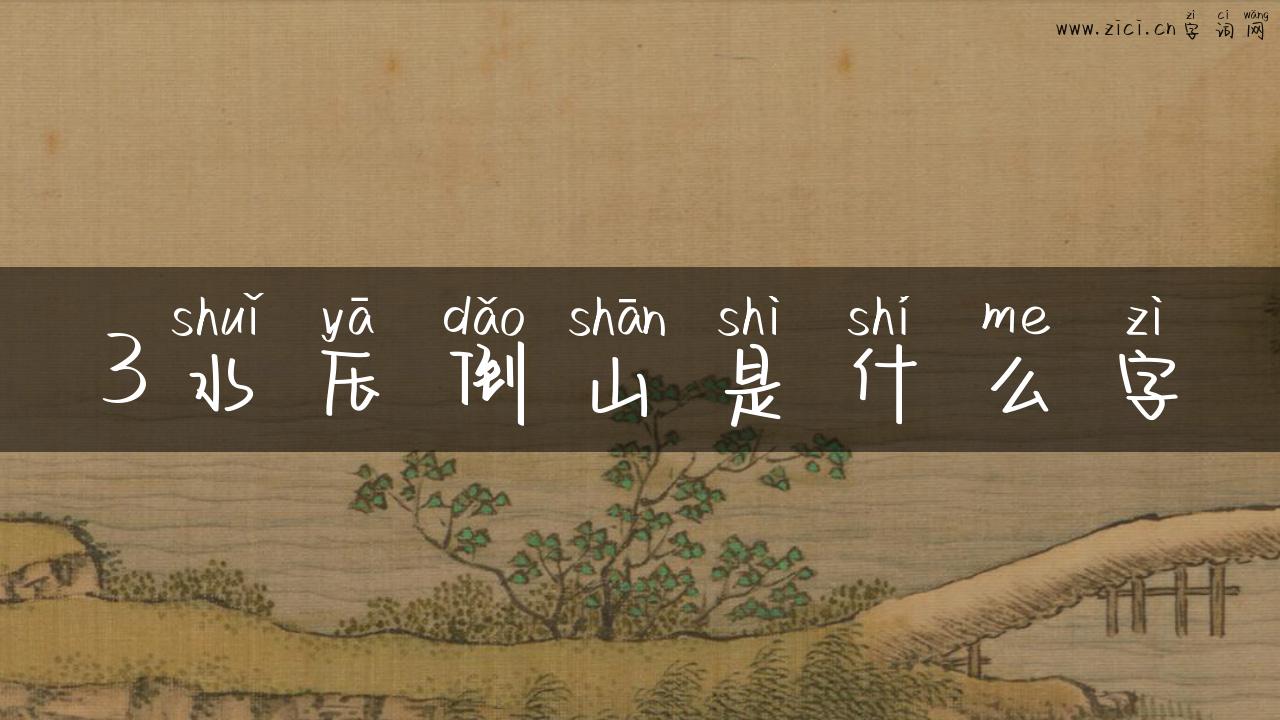 zì cí wǎng
www.zici.cn 字 词 网
shuǐ yā dǎo shān shì shí me zì
3 水 压 倒 山 是 什 么 字